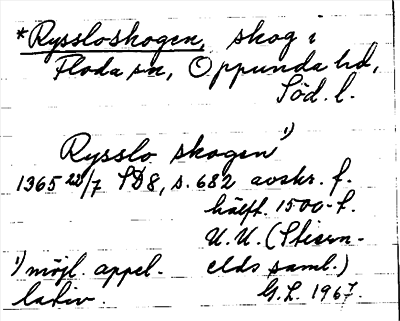 *Ryssloskogen, skog i
Floda sn, Oppunda hd,
Söd. l.
Rysslo skogen¹)
1365 22/7 SD8, s. 682 avskr. f.
hälft. 1500-t.
U.U. (Stiern-
¹) möjl. appel- elds saml.)
lativ. G.L. 1967.